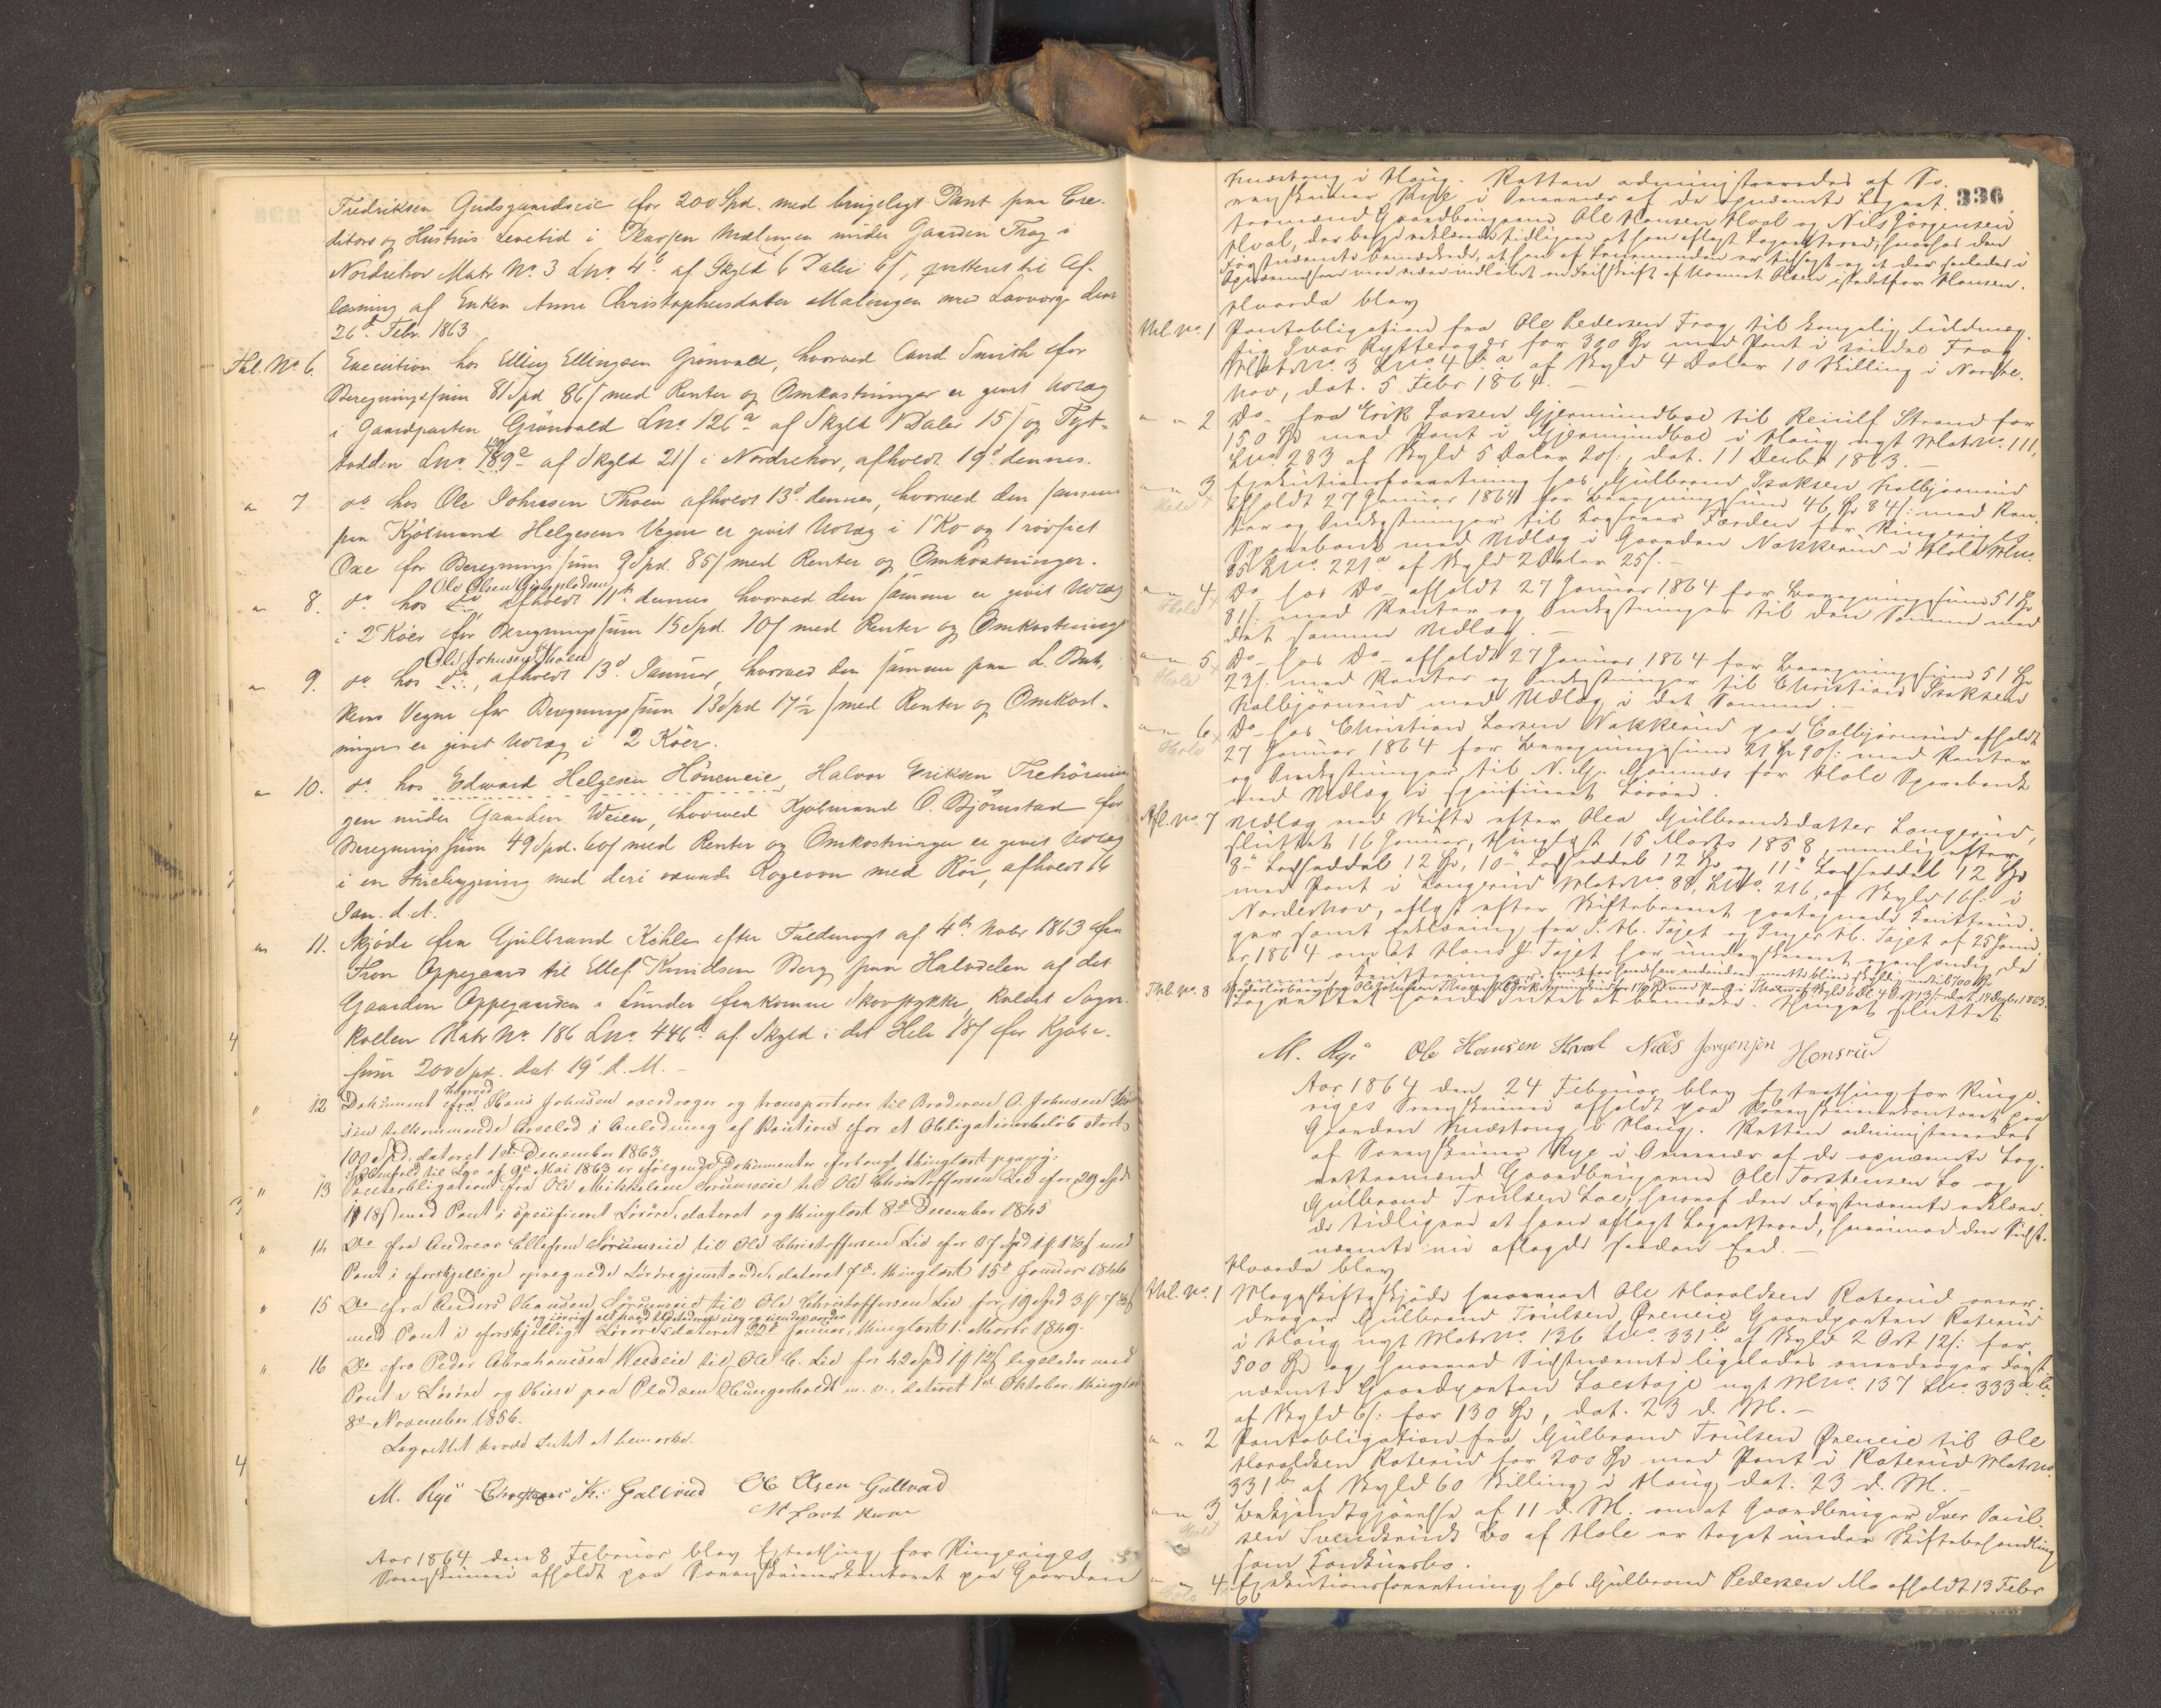 Fredriksen Gudsgaardseie for 200 Spd. med brugeligt Pant paa Cre-
ditors og Hustrus Levetid i Pladsen Mælingen under Gaarden Frag i
Nordrehov Matr No. 3 Lno. 4 b af Skyld 6 Daler 6 s, qvitteret til Af-
læsning af Enken Anne Christophersdatter Malingen med Laugværge den
26 d. Febr. 1863
Thl. No. 6. Execution hos Elling Ellingsen Grönvold, hvorved Cand. Smith for
Beregningssum 81 Spd 86 s med Renter og Omkostninger er givet Udlæg
i Gaardparten Grönvold Lno. 126 a af Skyld 1 Daler 15 s og Tyt-
todden Lno. 189 a af Skyld 21 s i Nordrehov, afholdt 19 d. dennes.
" 7 do. hos Ole Johnsen Thoen afholdt 13 d. dennes, hvorved den samme
paa Kjöbmand Helgesens Vegne er givet Udlæg i 1 Ko og 1
Oxe for Beregningssum 9 Spd. 85 s med Renter og Omkostninger.
Ole Olsen
" 8. do. hos do. afholdt 11 te dennes hvorved den samme er givet Udlæg
i 2 Köer for Beregningssum 15 Spd. 10 s med Renter og Omkostninger
Ole Johnsen Thoen
" 9. do. hos do., afholdt 13 d. Januar, hvorved den samme paa L. Bak-
kens Vegne for Beregningssum 13 Spd 17 1/2 s med Renter og Omkost-
ninger er givet Udlæg i 2 Köer.
" 10. do. hos Edward Helgesen Höneneie, Halvor Eriksen Trehörnin-
gen under Gaarden Weien, hvorved Kjöbmand O. Björnstad for
Beregningssum 49 Spd. 60 s med Renter og Omkostninger er givet Udlæg
i en Stuebygning med deri værende Kogeovn med Rör, afholdt 16
Jan. d. A.
" 11. Skjöde fra Gulbrand Kihle efter Fuldmagt af 4 de Novbr 1863 fra
Oppegaard til Ellef Knudsen Berg paa Halvdelen af det
Gaarden Oppegaarden i Lunder frakomne Skovstykke, kaldet Sogn-
kollen Matr No. 186 Lno. 446 d af Skyld i det Hele 18 s for Kjöbe-
sum 200 Spd. dat 19 d. M. –
hvorved
" 12 Dokument fra Hans Johnsen overdrager og transporterer til Broderen O. Johnsen
sin tilkommende Arvelod i Anledning af Kaution for et Obligationsbeløb stort
100 Spd. dateret 1 ste December 1863.
I Henhold til Lov af 9 de Mai 1863 er følgende Dokumenter forlangt thinglæst paany:
" 13 Panteobligation fra Ole Mikkelsen Sørumseie til Ole Christoffersen Lie for 29 Spd
18 s med Pant i specificeret Løsøre, dateret og thinglæst 8 de December 1845
" 14 Do fra Andreas Ellefsen Sørumseie til Ole Christoffersen Lie for 57 Spd med
Pant i forskjellige opregnede Løsøregjenstande, dateret 7 de thinglæst 15 d. Januar 1846
" 15 Do fra Anders Hansen Sørumseie til Ole Christoffersen Lie for 19 Spd 3
med Pant i forskjelligt Løsøre dateret 22 d. Januar, thinglæst 1. Marts 1849.
" 16 Do fra Peder Abrahamsen Weeseie til Ole C. Lie for 42 Spd 1 12 s ligeledes med
Pant i Løsøre og Huse paa Pladsen Hungerholdt m. v. dateret 1 ste Oktober, thinglæst
8 de November 1856.
Lagrettet havde Intet at bemærke.
M. Rye Christopher K. Gullerud Ole Olsen Gullerud
Aar 1864 den 8 Februar blev Extrathing for Ringeriges
Sorenskriveri afholdt paa Sorenskriverkontoret paa Gaarden
336
Knæstang i Haug. Retten administreredes af So-
renskriver Rye i Overvær af de opnævnte Lagret-
tesmænd Gaardbrugerne Ole Hansen Hval og Nils Jörgensen
Hval, der begge erklærede tidligere at have aflagt Lagretteed, hvorhos den
Førstnævnte bemærkede, at han af Lensmanden er tilsagt og at der saaledes i
Opnævnelsen maa være indløbet en Feilskrift af Navnet Olsen istedetfor Hansen.
Hvorda blev
Thl. No. 1 Pantobligation fra Ole Pedersen Frag til kongelig Fuldmæg-
tig Ivar Rytterager for 300 Spd med Pant i söndre Frag
Matr No. 3 Lno. 4 b a af Skyld 4 Daler 10 Skilling i Norde-
hov, dat. 5 Febr 1864. –
" " 2 Do fra Erik Larsen Gjermundboe til Reiulf Strand for
150 Spd med Pant i Gjermundboe i Haug nyt Matr No. 111,
Lno. 283 af Skyld 5 Daler 20 s., dat. 11 Decbr 1863. –
" " 3 Exekutionsforretning hos Gulbrand Isaksen Kolbjörnrud
Hole + afholdt 27 Januar 1864 for Beregningssum 46 Spd 84 s. med Ren-
ter og Omkostninger til Lagfører Færden for Ringeriges
Sparebank med Udlæg i Gaarden Nakkerud i Hole Mno.
85 Lno. 221 a af Skyld 2 Daler 25 s. –
" " 4 Do hos Do afholdt 27 Januar 1864 for Beregningssum 51 Spd
Hole + 81 s. med Renter og Omkostninger til den Samme med
det samme Udlæg. –
" " 5 Do hos Do afholdt 27 Januar 1864 for Beregningssum 51 Spd
Hole + 22 s. med Renter og Omkostninger til Christian Isaksen
Kolbjörnrud med Udlæg i det Samme. –
" " 6 Do hos Christian Larsen Nakkerud paa Colbjörnrud afholdt
Hole + 27 Januar 1864 for Beregningssum 21 Spd 90 s. med Renter
og Omkostninger til N. G. Gomnæs for Hole Sparebank
med Udlæg i specificeret Løsøre.
Afl. No. 7 Udlæg ved Skifte efter Olea Gulbrandsdatter Langerud,
sluttet 16 Januar, thinglæst 15 Marts 1858, nemlig efter
8 de Lodseddel 12 Spd, 10 de Lodseddel 12 Spd og 11 te Lodseddel 12 Spd
med Pant i Langerud Matr No. 88, Lno. 216, af Skyld 16 s. i
Norderhov, aflæst efter Skiftebrevet paategnede Kvitterin-
ger samt Erklæring fra P. Th. Tajet og Inger Th. Tajet af 25 Janu-
ar 1864 om at Hans J. Tajet har underskrevet egenhændig de
samme Kvitteringer
Thl. No. 8
Lagrettet havde Intet at bemærke. Thinget sluttet.
M. Rye Ole Hansen Hval Niels Jørgensen Honsrud
Aar 1864 den 24 Februar blev Extrathing for Ringe-
riges Sorenskriveri afholdt paa Sorenskriverkontoret paa
Gaarden Knæstang i Haug. Retten administreredes
af Sorenskriver Rye i Overvær af de opnævnte Lag-
rettesmænd Gaardbrugerne Ole Torstensen Bo og
Gulbrand Trulsen Loe, hvoraf den Førstnævnte erklære-
de tidligere at have aflagt Lagretteed, hvorimod den Sidst-
nævnte nu aflagde saadan Eed. –
Hvorda blev
Thl. No. 1 Mageskifteskjøde hvorved Ole Haraldsen Raterud over-
drager Gulbrand Trulsen Øreneie Gaardparten Raterud
i Haug nyt Matr No. 136 Lno. 331 b af Skyld 2 Ort 12 s. for
500 Spd og hvorved Sidstnævnte ligeledes overdrager Først-
nævnte Gaardparten Loestøje nyt Mno. 137 Lno. 333 a b
af Skyld 6 s. for 130 Spd, dat. 23 d. M. –
" " 2 Pantobligation fra Gulbrand Trulsen Øreneie til Ole
Haraldsen Raterud for 200 Spd med Pant i Raterud Matr No.
331 b af Skyld 60 Skilling i Haug dat. 23 d. M. –
" " 3 Bekjendtgjørelse af 11 d. M. om at Gaardbruger Iver Paul-
Hole sen Svendsruds Bo af Hole er taget under Skiftebehandling
som Konkursbo.
" " 4 Exekutionsforretning hos Gulbrand Pedersen Mo afholdt 13 Febr
Hole